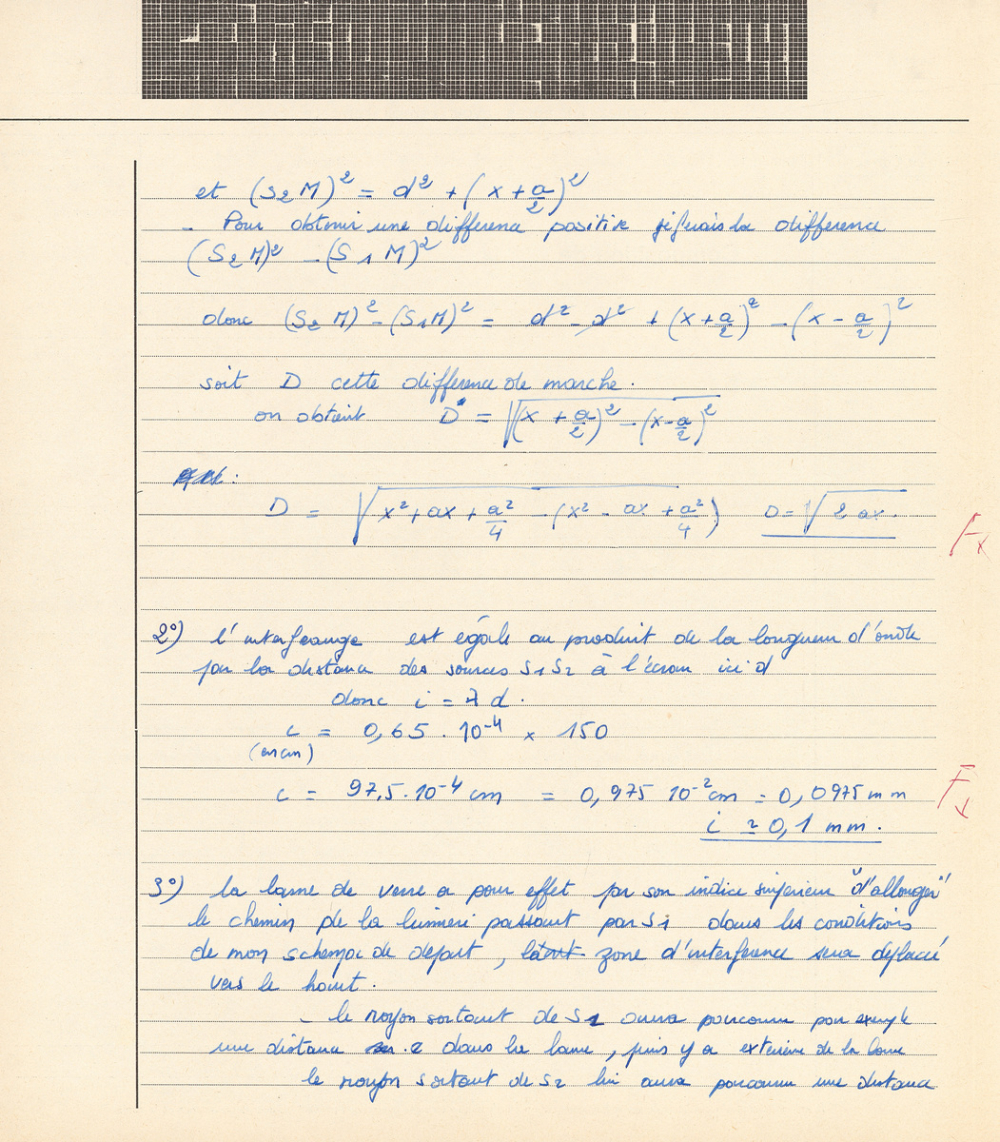 et (S2 M)² = d² + (x + a/2)²
- Pour obtenir une difference positive je fais la difference
(S2 M)² - (S1 M)²
donc (S2 M)² - (S1 M)² = d² - d² + (x + a/2)² - (x - a/2)²
soit D cette difference de marche.
on obtient D = √((x + a/2)² - (x - a/2)²)
D = √(x² + ax + a²/4 - (x² - ax + a²/4)) D = √(2 ax.
Fx
2°) l'interfrange est égale au produit de la longueur d'onde
par la distance des sources S1 S2 à l'écran ici d
donc i = λ d.
i = 0,65 . 10⁻⁴ × 150
(en cm)
i = 97,5 . 10⁻⁴ cm = 0,975 10⁻² cm = 0,0975 mm
F
i ≃ 0,1 mm.
3°) la lame de verre a pour effet par son indice superieur "d'allonger"
le chemin de la lumière passant par S1 dans les conditions
de mon schema de départ, la zone d'interference sera déplacé
vers le haut.
- le rayon sortant de S1 aura parcouru par exemple
une distance e dans la lame, puis y a exterieure de la lame
le rayon sortant de S2 lui aura parcouru une distance